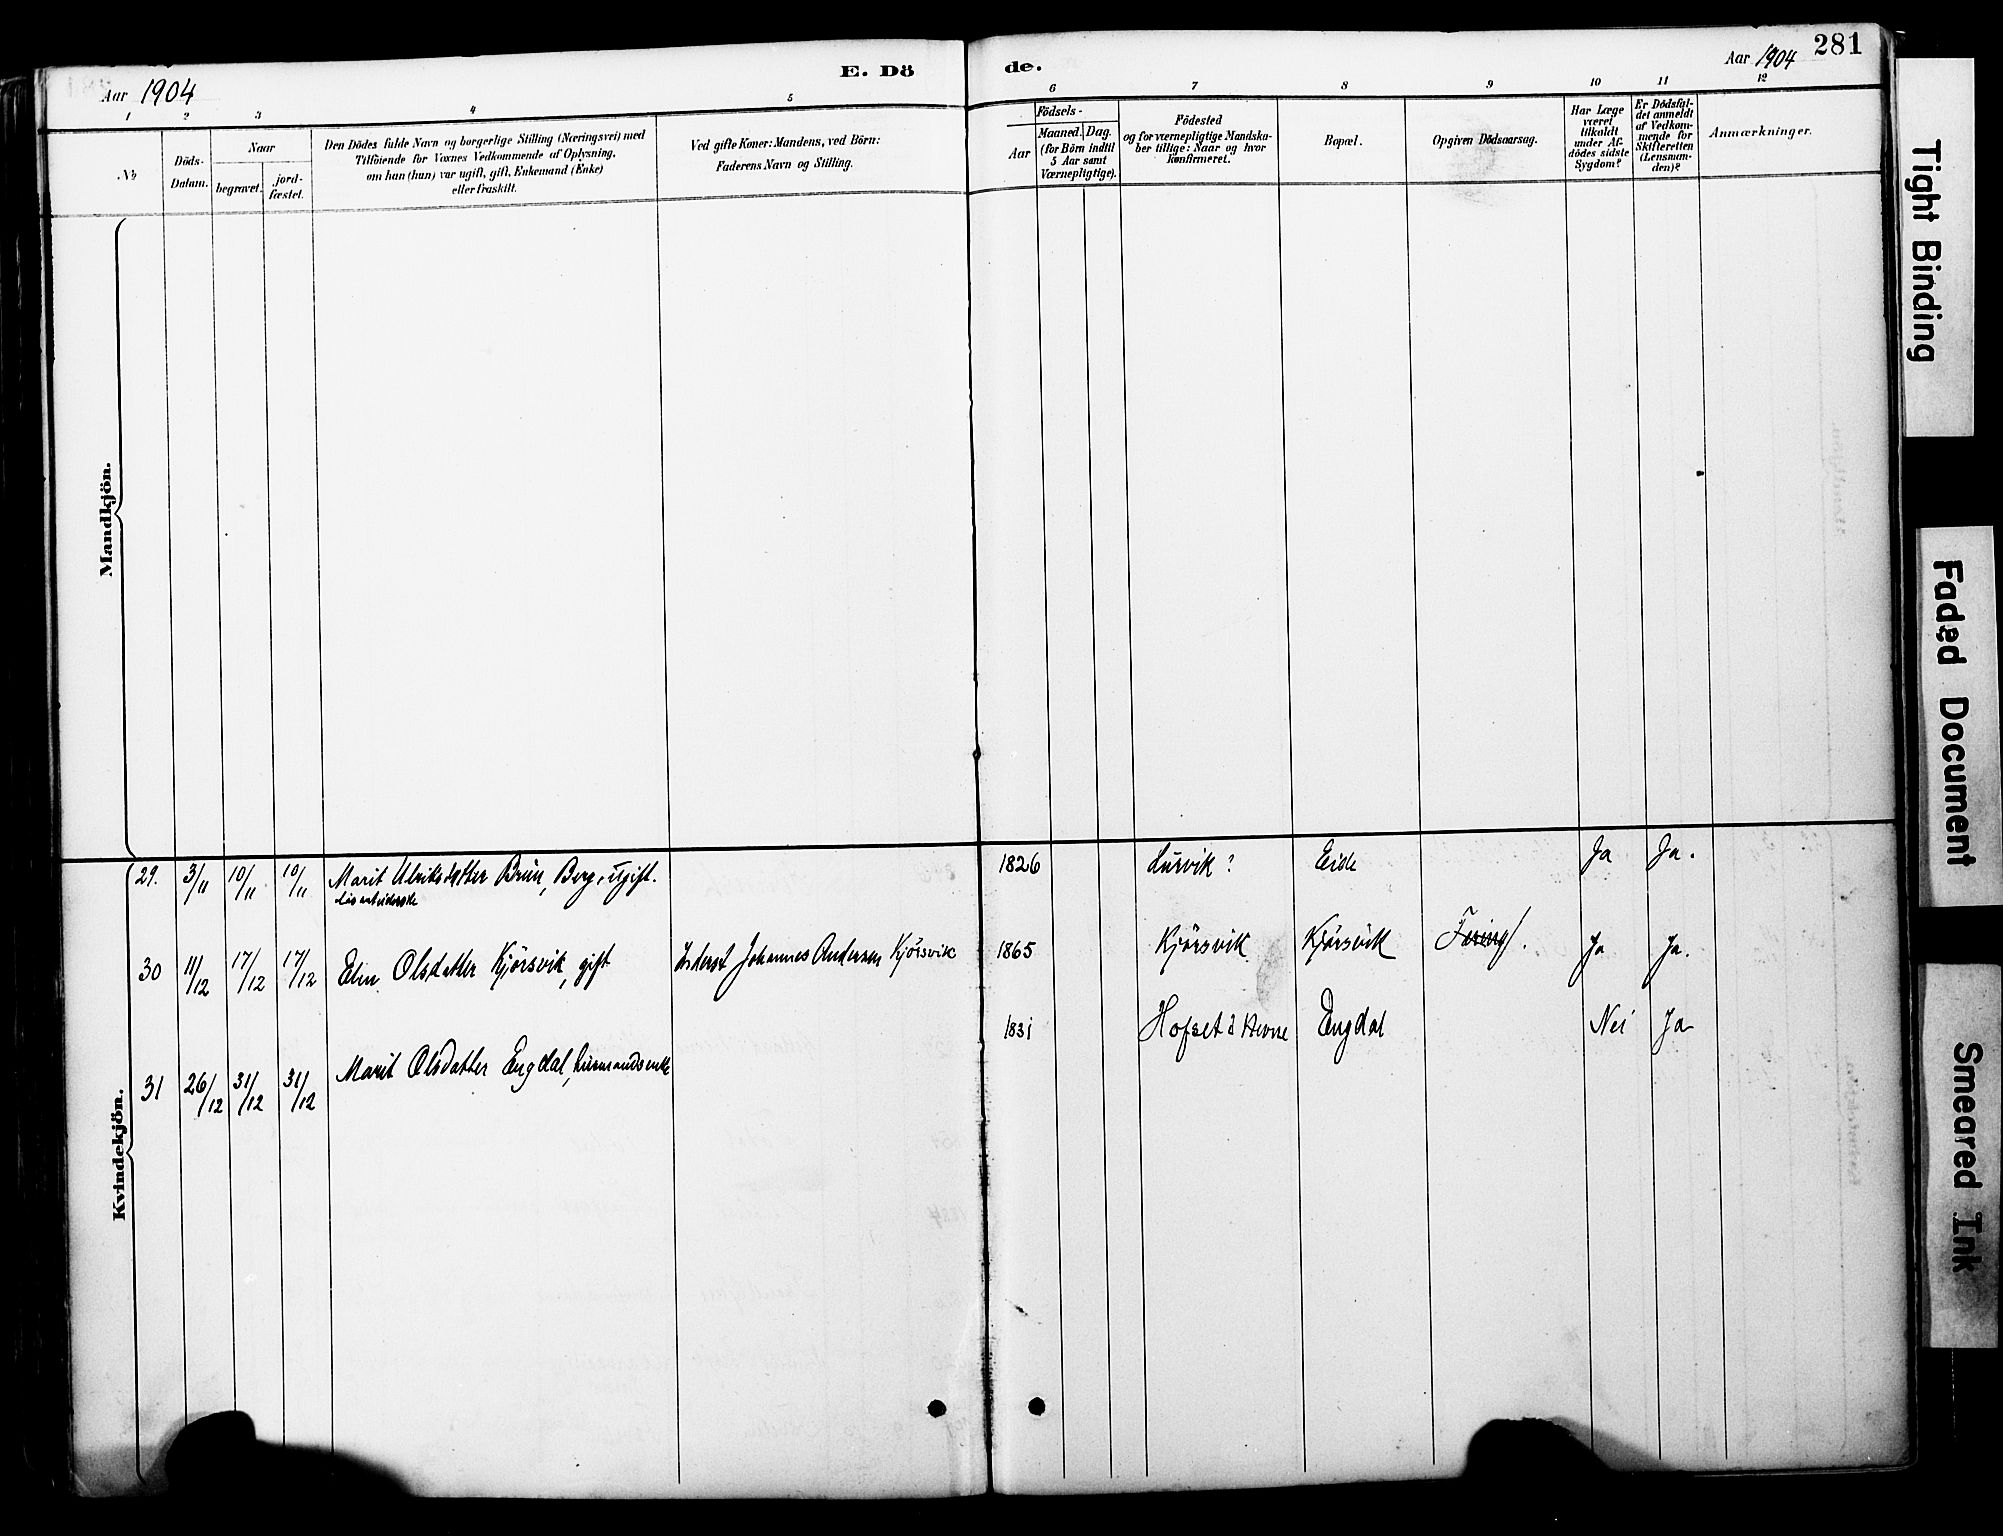 281
Aar 1904
E. Dö
de.
Aar 1904
1 2 3 4 5
6 7 8 9 10 11 12
No
Döds-
Datum.
Naar
begravet.
jord-
fæstet.
Den Dödes fulde Navn og borgerlige Stilling (Næringsvei) med
Tilföiende for Voxnes Vedkommende af Oplysning,
om han (hun) var ugift, gift, Enkemand (Enke)
eller fraskilt.
Ved gifte Koner: Mandens, ved Börn:
Faderens Navn og Stilling.
Födsels-
Aar
Maaned. Dag.
(for Börn indtil
5 Aar samt
Værnepligtige).
Födested
og for værnepligtige Mandska-
ber tillige: Naar og hvor
konfirmeret.
Bopæl.
Opgiven Dödsaarsag.
Har Læge
været
tilkaldt
under Af-
dödes sidste
Sygdom?
Er Dödsfal-
det anmeldt
af Vedkom-
mende for
Skifteretten
(Lensman-
den)?
Anmærkninger.
Mandkjön.
Kvindekjön.
29. 3/11 10/11 10/11 Marit Ulriksdatter Brün, Berg, ugift. 1826 Lurvik? Eide Ja Ja.
30 11/12 17/12 17/12 Elen Olsdatter Kjörsvik, gift Inderst Johannes Andersen Kjörsvik 1865 Kjörsvik Kjörsvik Ja Ja.
31 26/12 31/12 31/12 Marit Olsdatter Engdal, Huusmandsenke 1831 Hofset i Hevne Engdal Nei Ja
Tight Binding
Faded Document
Smeared Ink